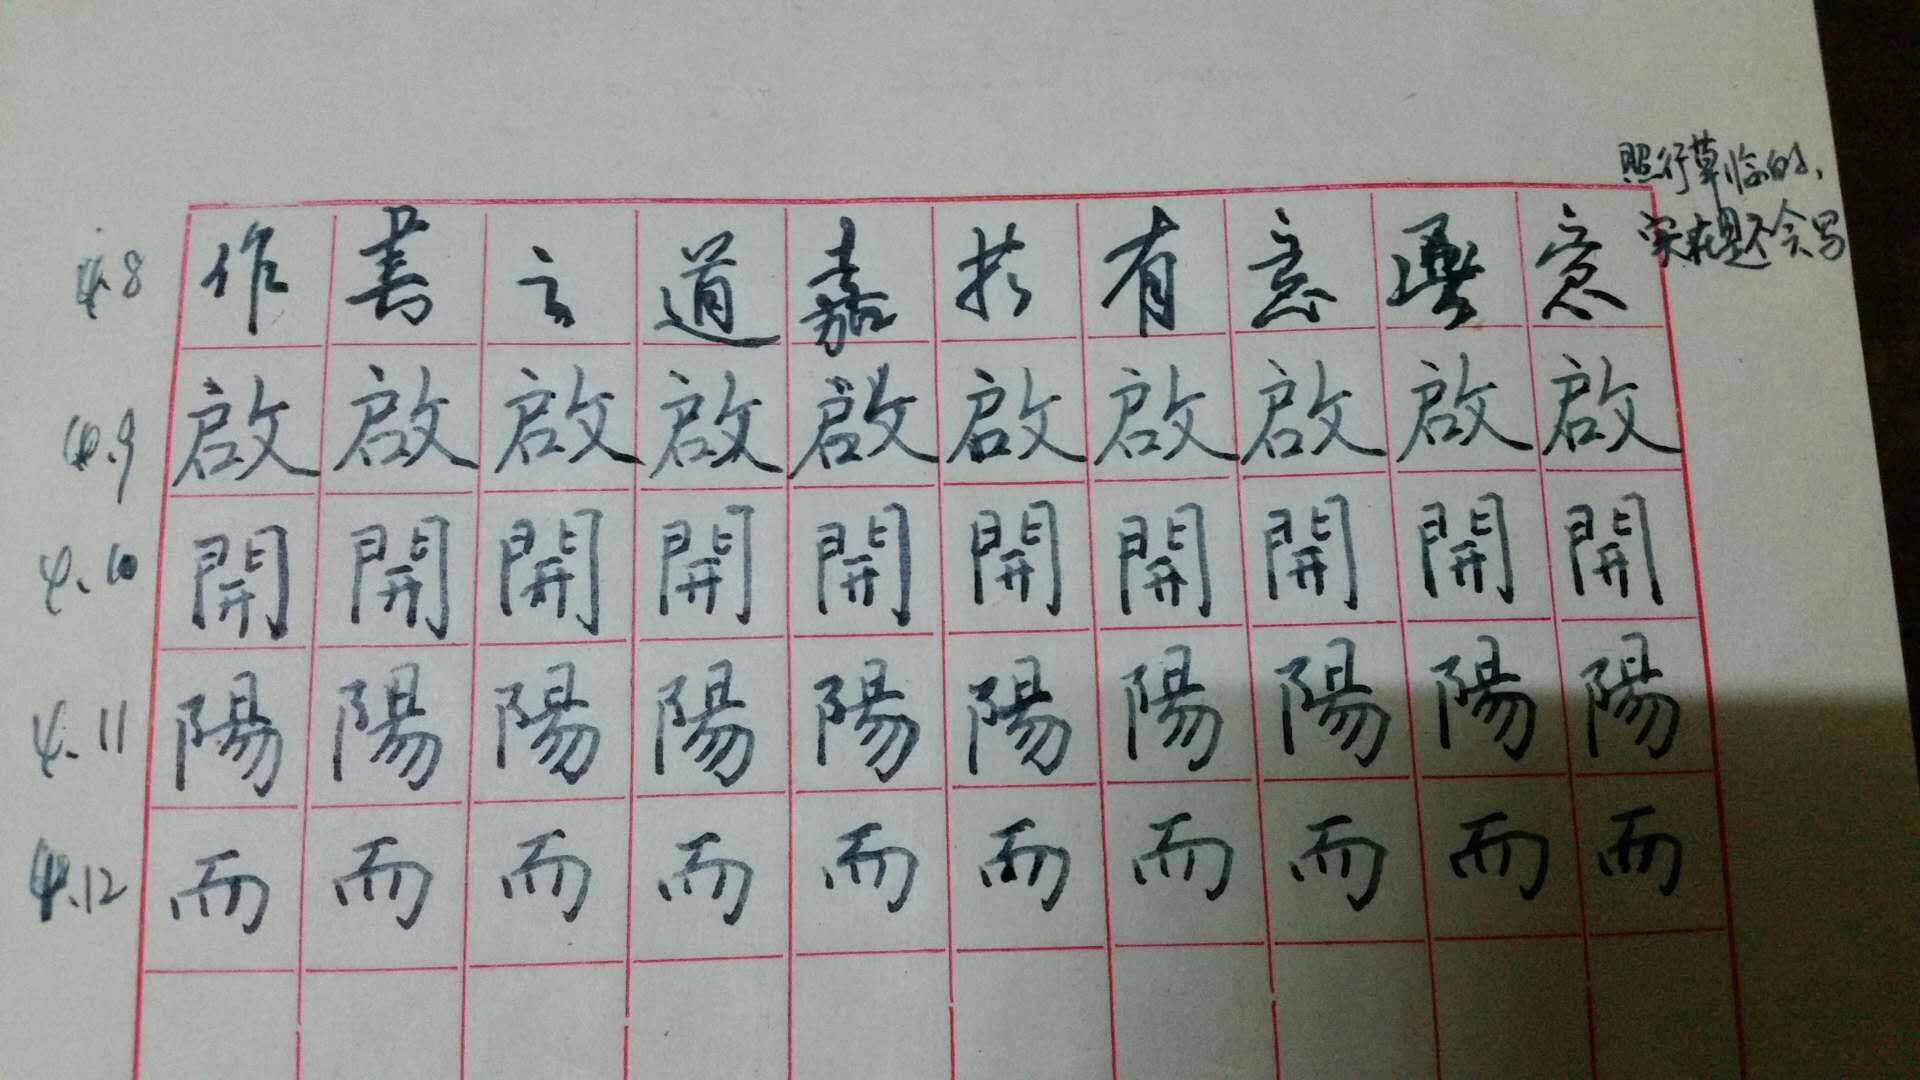 照行草临的,
实在是不会写
4.8 作書言道嘉於有意無意
4.9 啟啟啟啟啟啟啟啟啟啟
4.10 開開開開開開開開開開
4.11 陽陽陽陽陽陽陽陽陽陽
4.12 而而而而而而而而而而